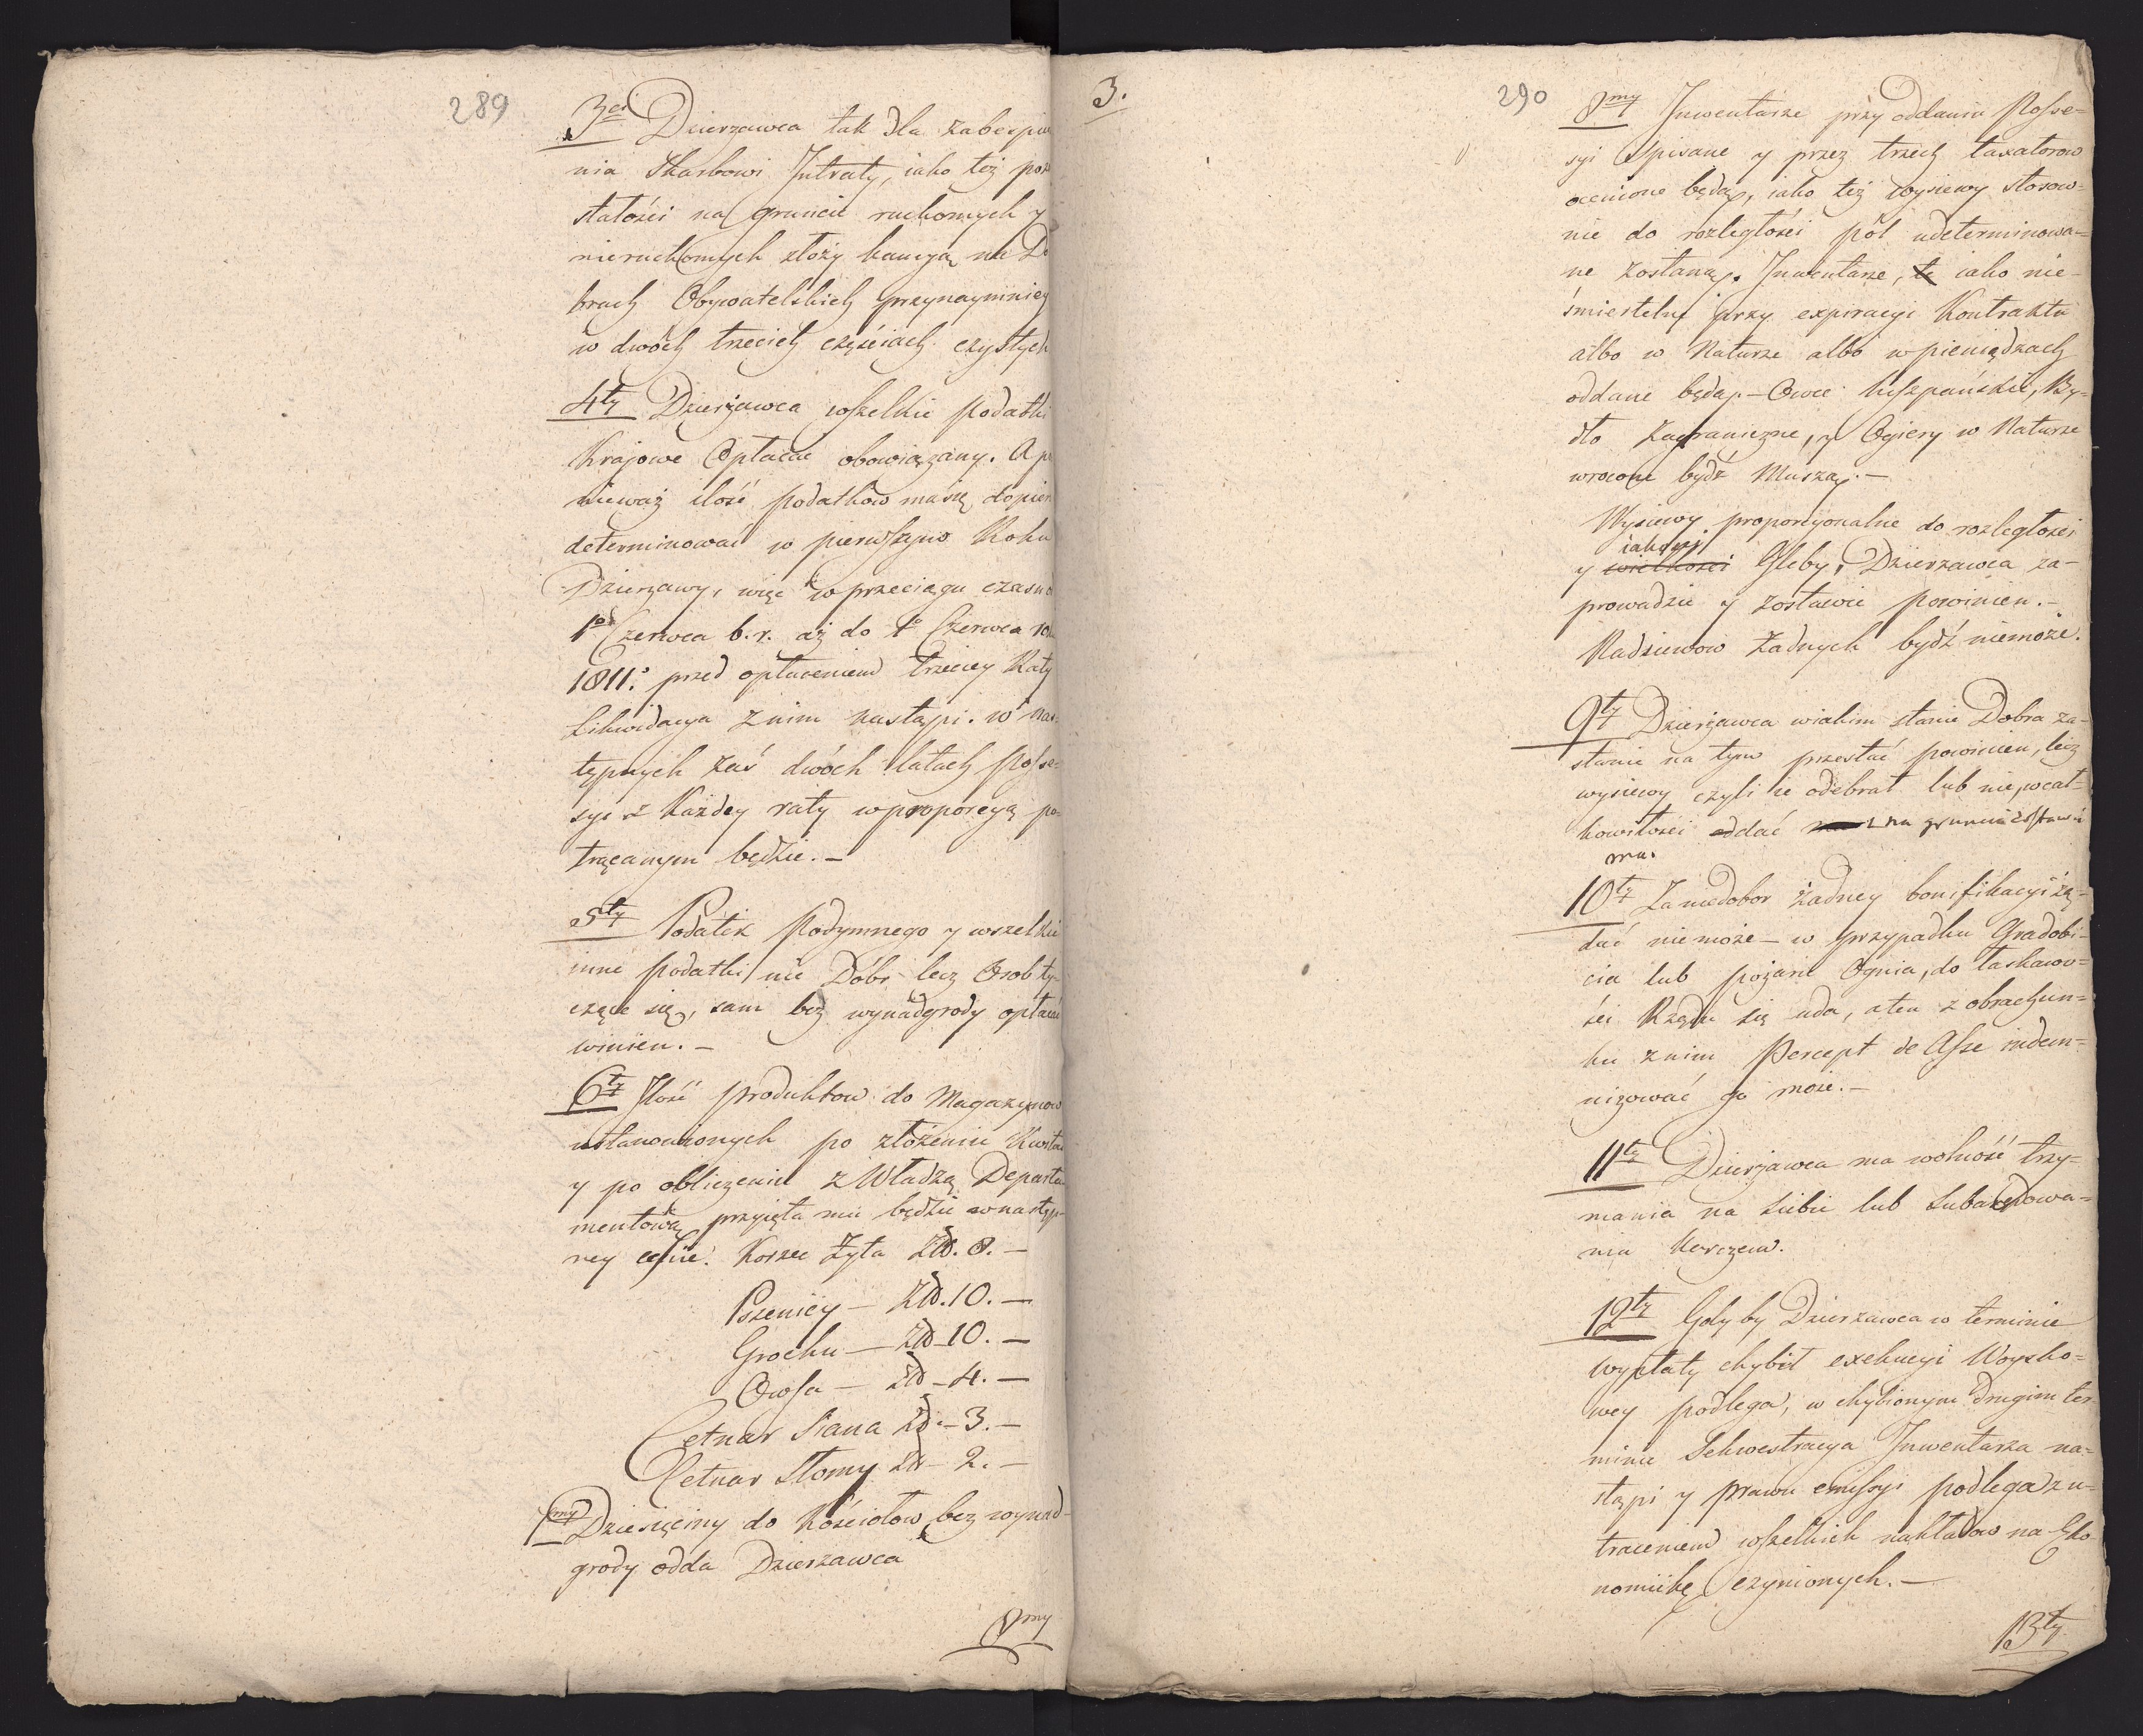 289
3ci Dzierzawca tak dla zabespie
nia Skarbowi Intraty, iako też poz
stałości na gruncie ruchomych y
nieruchomych złoży kaucyą na Do
brach Obywatelskich przynaymniey
w dwóch trzecich częściach czystych
4ty Dzierżawca wszelkie podatki
Krajowe Opłacać obowiązany. A po
nieważ ilość podatkow ma się dopier
determinować w pierwszym Roku
Dzierzawy, więc w przeciągu czasu od
1o Czerwca b. r. aż do 1o Czerwca rok
1811o przed opłaceniem trzeciey Raty
Likwidacya z nim nastąpi. w nas=
tępnych zaś dwóch latach posse=
syi z Każdey raty w proporcyą po=
trącanym będzie. —
5ty Podatek Podymnego y wszelkie
inne podatki nie Dóbr lecz Osob ty=
czące się, sam bez wynadgrody opłacać
winien. —
6ty Ilość produktow do Magazynow
ustanowionych po złożeniu Kwitu
y po obliczeniu z Władzą Departa
mentową przyięta mu będzie w następ=
ney cenie. Korzec Żyta Złt. 8. —
Pszenicy — Złt. 10. —
Grochu — Złt 10. —
Owsa — Złt — 4. —
Cetnar Siana Zł. — 3. —
Cetnar Słomy Zł — 2. —
7my Dziesięciny do Kościołow bez wynad=
grody odda Dzierzawca
8my
3.
290
8my Inwentarze przy oddaniu Posse=
syi spisane y przez trzech taxatorow
ocenione będą, iako też wysiewy stosow=
nie do rozległości pól udeterminowa=
ne zostaną. Inwentarze, te iako nie=
śmiertelne przy expiracyi Kontraktu
albo w Naturze albo w pieniądzach
oddane będą. — Owce hiszpańskie, By=
dło zagraniczne, y Ogiery w Naturze
wrocone bydź Muszą. —
Wysiewy proporcyonalne do rozległosci
iakości
y wielkości Gleby, Dzierzawca za=
prowadzić y zostawić powinien. —
Nadsiewow żadnych bydź niemoże.
9ty Dzierżawca w iakim stanie Dobra za=
stanie na tym przestać powinien, lecz
wysiewy czyli ie odebrał lub nie, w cał=
kowitości oddać i na gruncie zostawić
ma.
10ty Za niedobor żadney bonifikacyi żą=
dać nie może — w przypadku Gradobi=
cia lub pożaru Ognia, do łaskawo=
ści Rządu się uda, a ten z obrachun=
ku z nim Percept de Asse indem=
nizować go może. —
11ty Dzierżawca ma wolność trzy=
mania na siebie lub Subarędowa=
nia Karczem.
12ty Gdyby Dzierzawca w terminie
wypłaty chybił exekucyi Woysko=
wey podlega, w chybionym drugim ter=
minie Sekwestracya Inwentarza na=
stąpi y prawu emissyi podlega z u=
traceniem wszelkich nakładow na Eko=
nomiikę czynionych. —
13ty